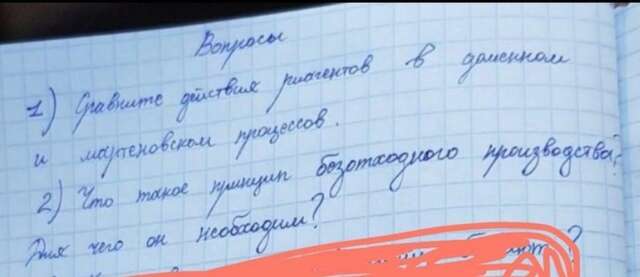 Вопросы
1) Сравните действия реагентов в доменном
и мартеновском процессов.
2) Что такое принцип безотходного производства?
Для чего он необходим?